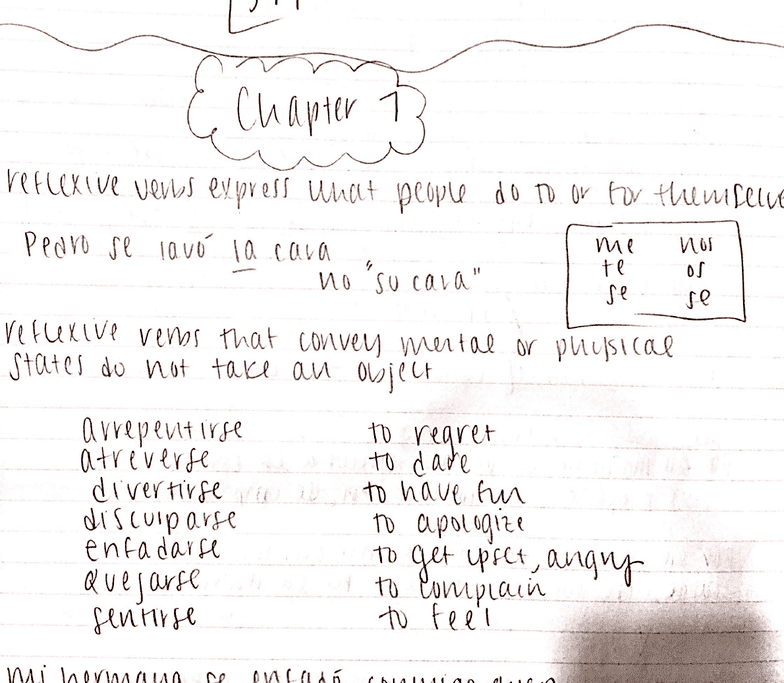 Chapter 1
reflexive verbs express what people do to or for themselve
Pedro se lavó la cara
no "su cara"
me nos
te os
se se
reflexive verbs that convey mental or physical
states do not take an object
arrepentirse to regret
atreverse to dare
divertirse to have fun
disculparse to apologize
enfadarse to get upset, angry
quejarse to complain
sentirse to feel
mi hermana se enfadó conmigo